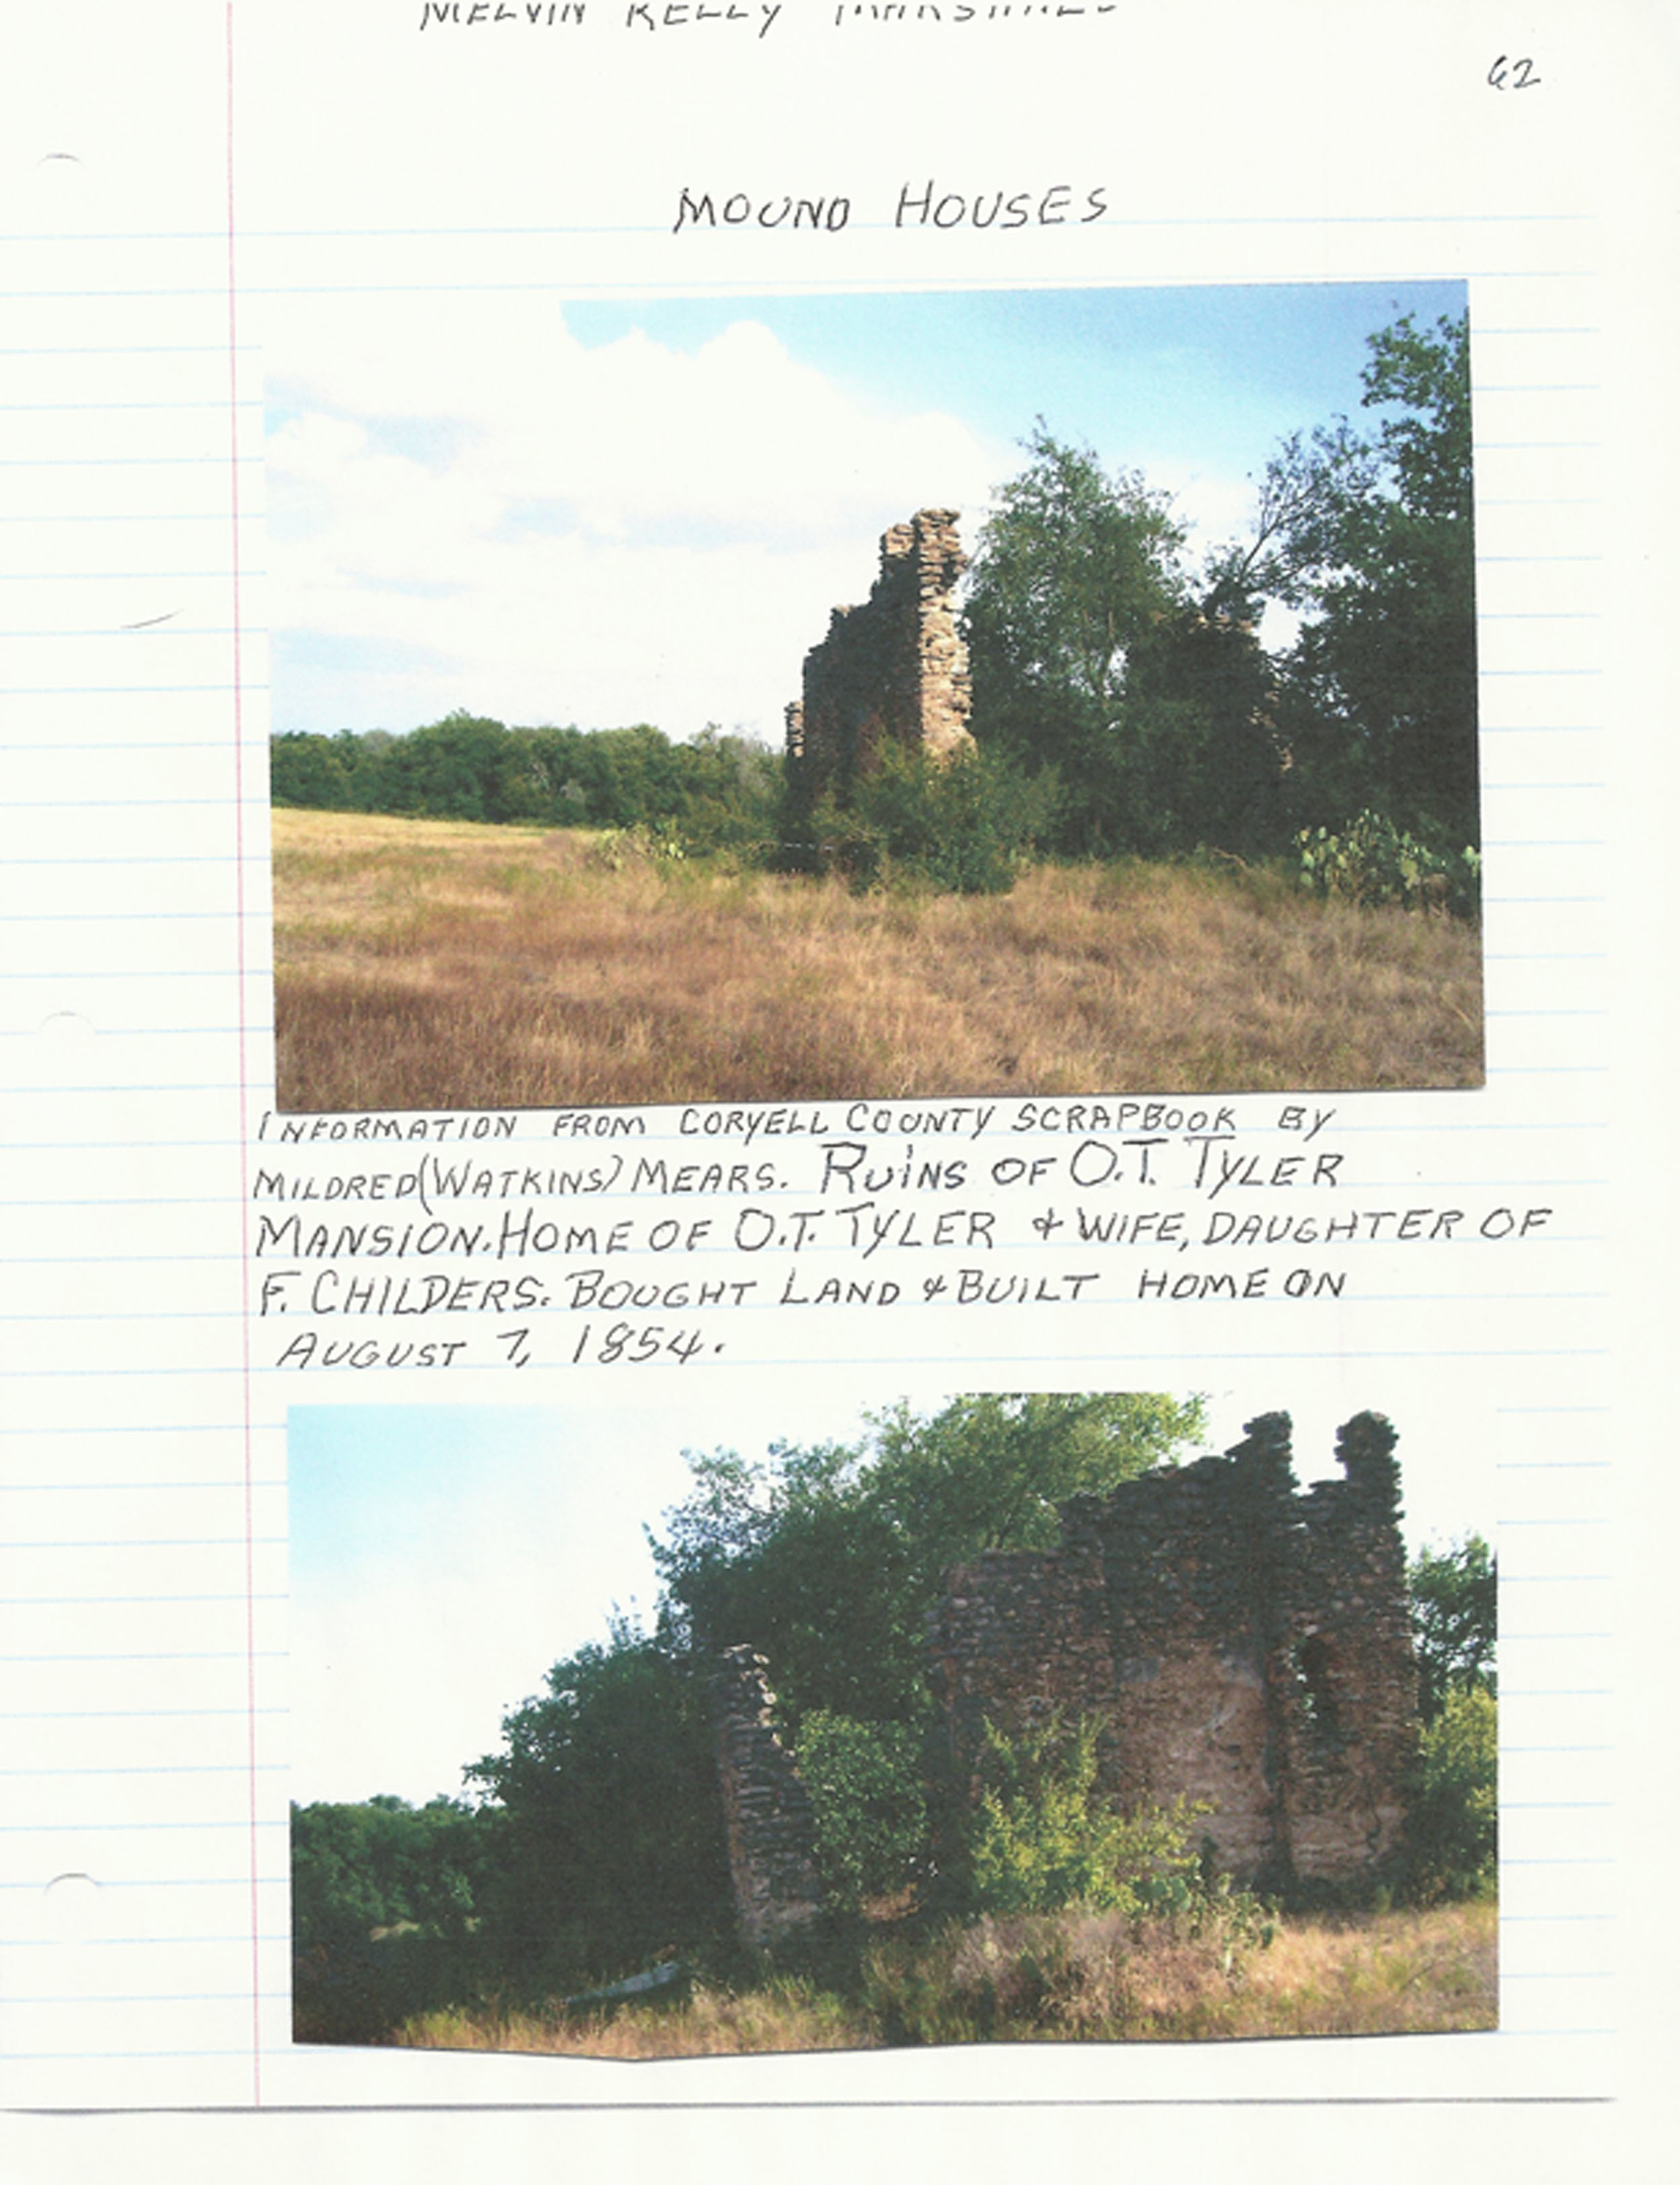 MELVIN KELLY
62
MOUND HOUSES
INFORMATION FROM CORYELL COUNTY SCRAPBOOK BY
MILDRED (WATKINS) MEARS. RUINS OF O.T. TYLER
MANSION. HOME OF O.T. TYLER & WIFE, DAUGHTER OF
F. CHILDERS. BOUGHT LAND & BUILT HOME ON
AUGUST 7, 1854.